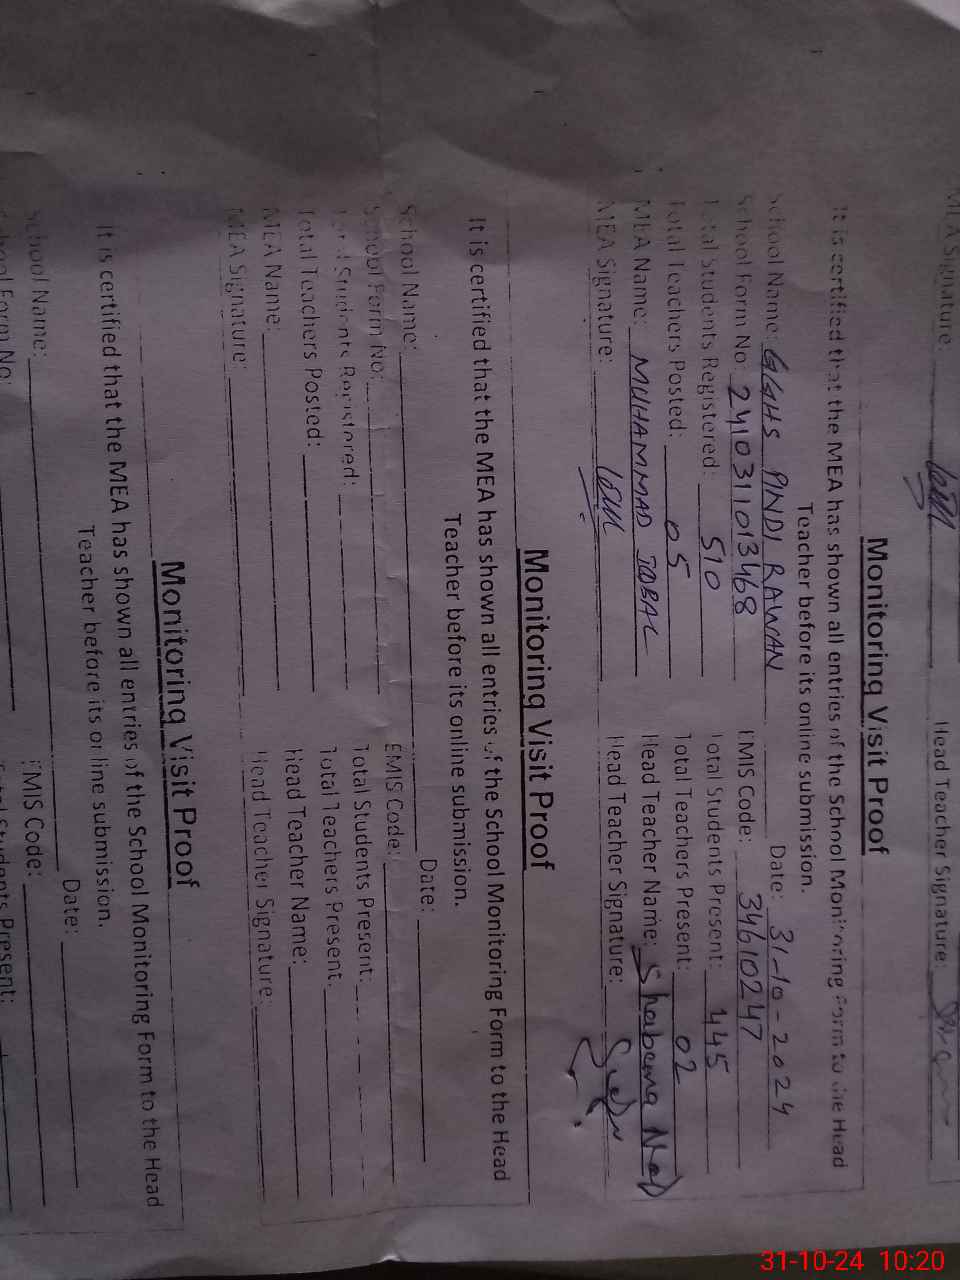 MEA Signature: Head Teacher Signature:
Monitoring Visit Proof
It is certified that the MEA has shown all entries of the School Monitoring Form to the Head
Teacher before its online submission.
School Name: GGHS PINDI RAWAN Date: 31-10-2024
School Form No: 2410311013468 EMIS Code: 34610247
Total Students Registered: 510 Total Students Present: 445
Total Teachers Posted: 05 Total Teachers Present: 02
MEA Name: MUHAMMAD IQBAL Head Teacher Name: Shabana
MEA Signature: Head Teacher Signature:
Monitoring Visit Proof
It is certified that the MEA has shown all entries of the School Monitoring Form to the Head
Teacher before its online submission.
School Name: Date:
School Form No: EMIS Code:
Total Students Registered: Total Students Present:
Total Teachers Posted: Total Teachers Present:
MEA Name: Head Teacher Name:
MEA Signature: Head Teacher Signature:
Monitoring Visit Proof
It is certified that the MEA has shown all entries of the School Monitoring Form to the Head
Teacher before its online submission.
School Name: Date:
School Form No: EMIS Code:
Total Students Present:
31-10-24 10:20